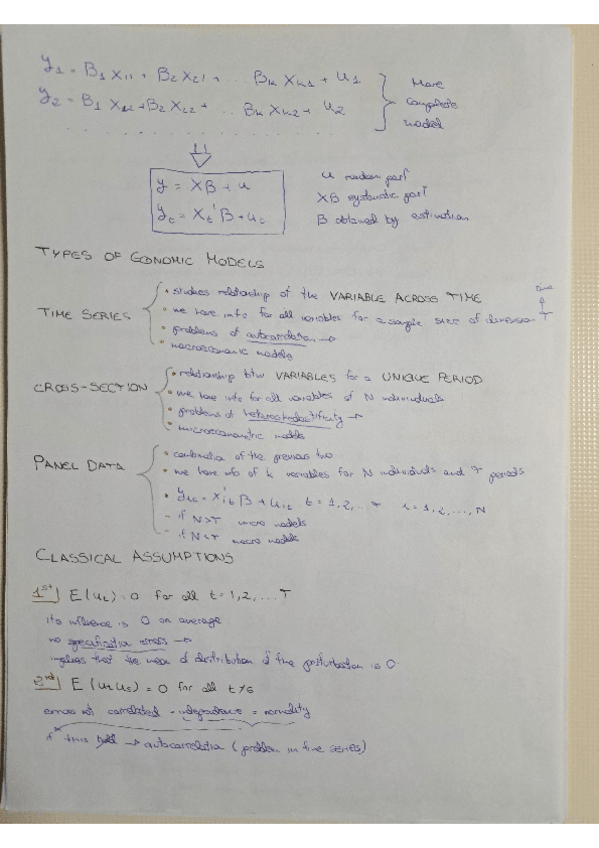 y1 = B1 X11 + B2 X21 + ... Bk Xk1 + u1
y2 = B1 X12 + B2 X22 + ... Bk Xk2 + u2
More complete model
y = XB + u
yt = Xt' B + ut
u random part
XB systematic part
B obtained by estimation
TYPES OF ECONOMIC MODELS
TIME SERIES
• studies relationship of the VARIABLE ACROSS TIME
time
• we have info for all variables for a sample size of dimension T
• problems of autocorrelation →
• macroeconomic models
CROSS-SECTION
• relationship btw VARIABLES for a UNIQUE PERIOD
• we have info for all variables of N individuals
• problems of →
• microeconometric models
PANEL DATA
• combination of the previous two
• we have info of k variables for N individuals and T periods
• yit = Xit' B + uit t = 1, 2, .. T i = 1, 2, ..., N
- if N>T micro models
- if N<T macro models
CLASSICAL ASSUMPTIONS
1st E(ut) = 0 for all t = 1, 2, ... T
its influence is 0 on average
no specification errors →
implies that the mean of distribution of the perturbation is 0
2nd E(ut us) = 0 for all t ≠ s
errors not correlated - independence = normality
if this → autocorrelation (problem in time series)